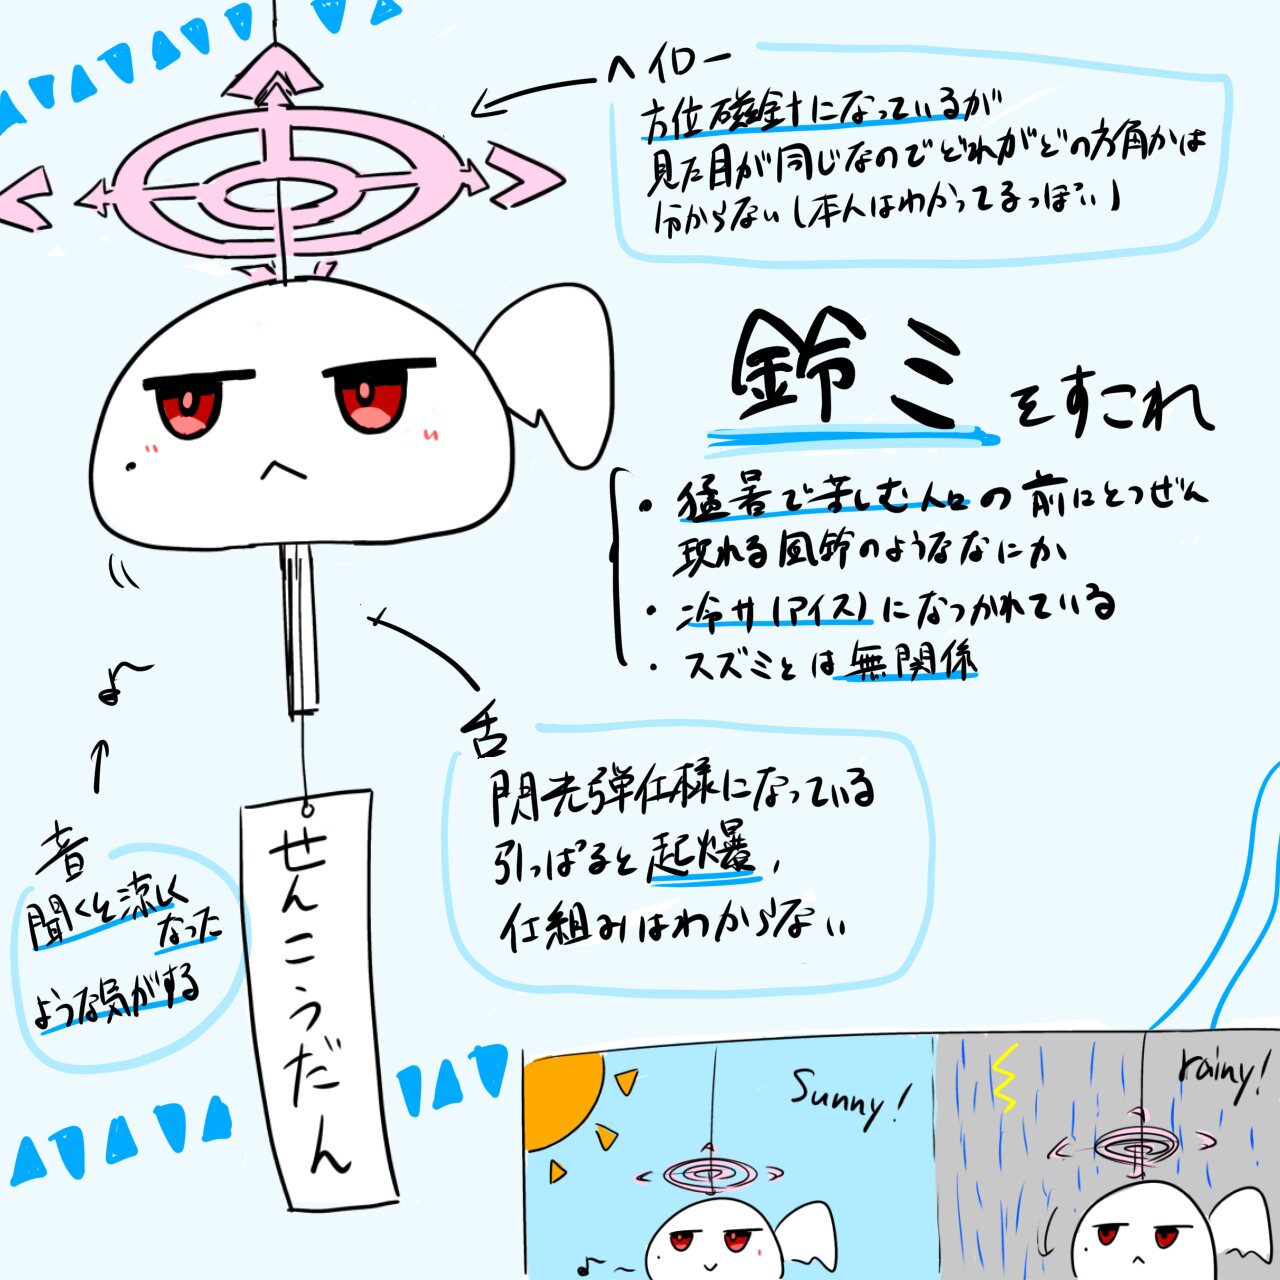 ヘイロー
方位磁針になっているが
見た目が同じなのでどれがどの方角かは
分からない(本人はわかってるっぽい)
鈴ミをすこれ
・猛暑で苦しむ人口の前にとつぜん
現れる風鈴のようななにか
・冷サ(アイス)になつかれている
・スズミとは無関係
舌
閃光弾仕様になっている
引っぱると起爆,
仕組みはわからない
音
聞くと涼しく
なった
ような気がする
せんこうだん
Sunny!
rainy!